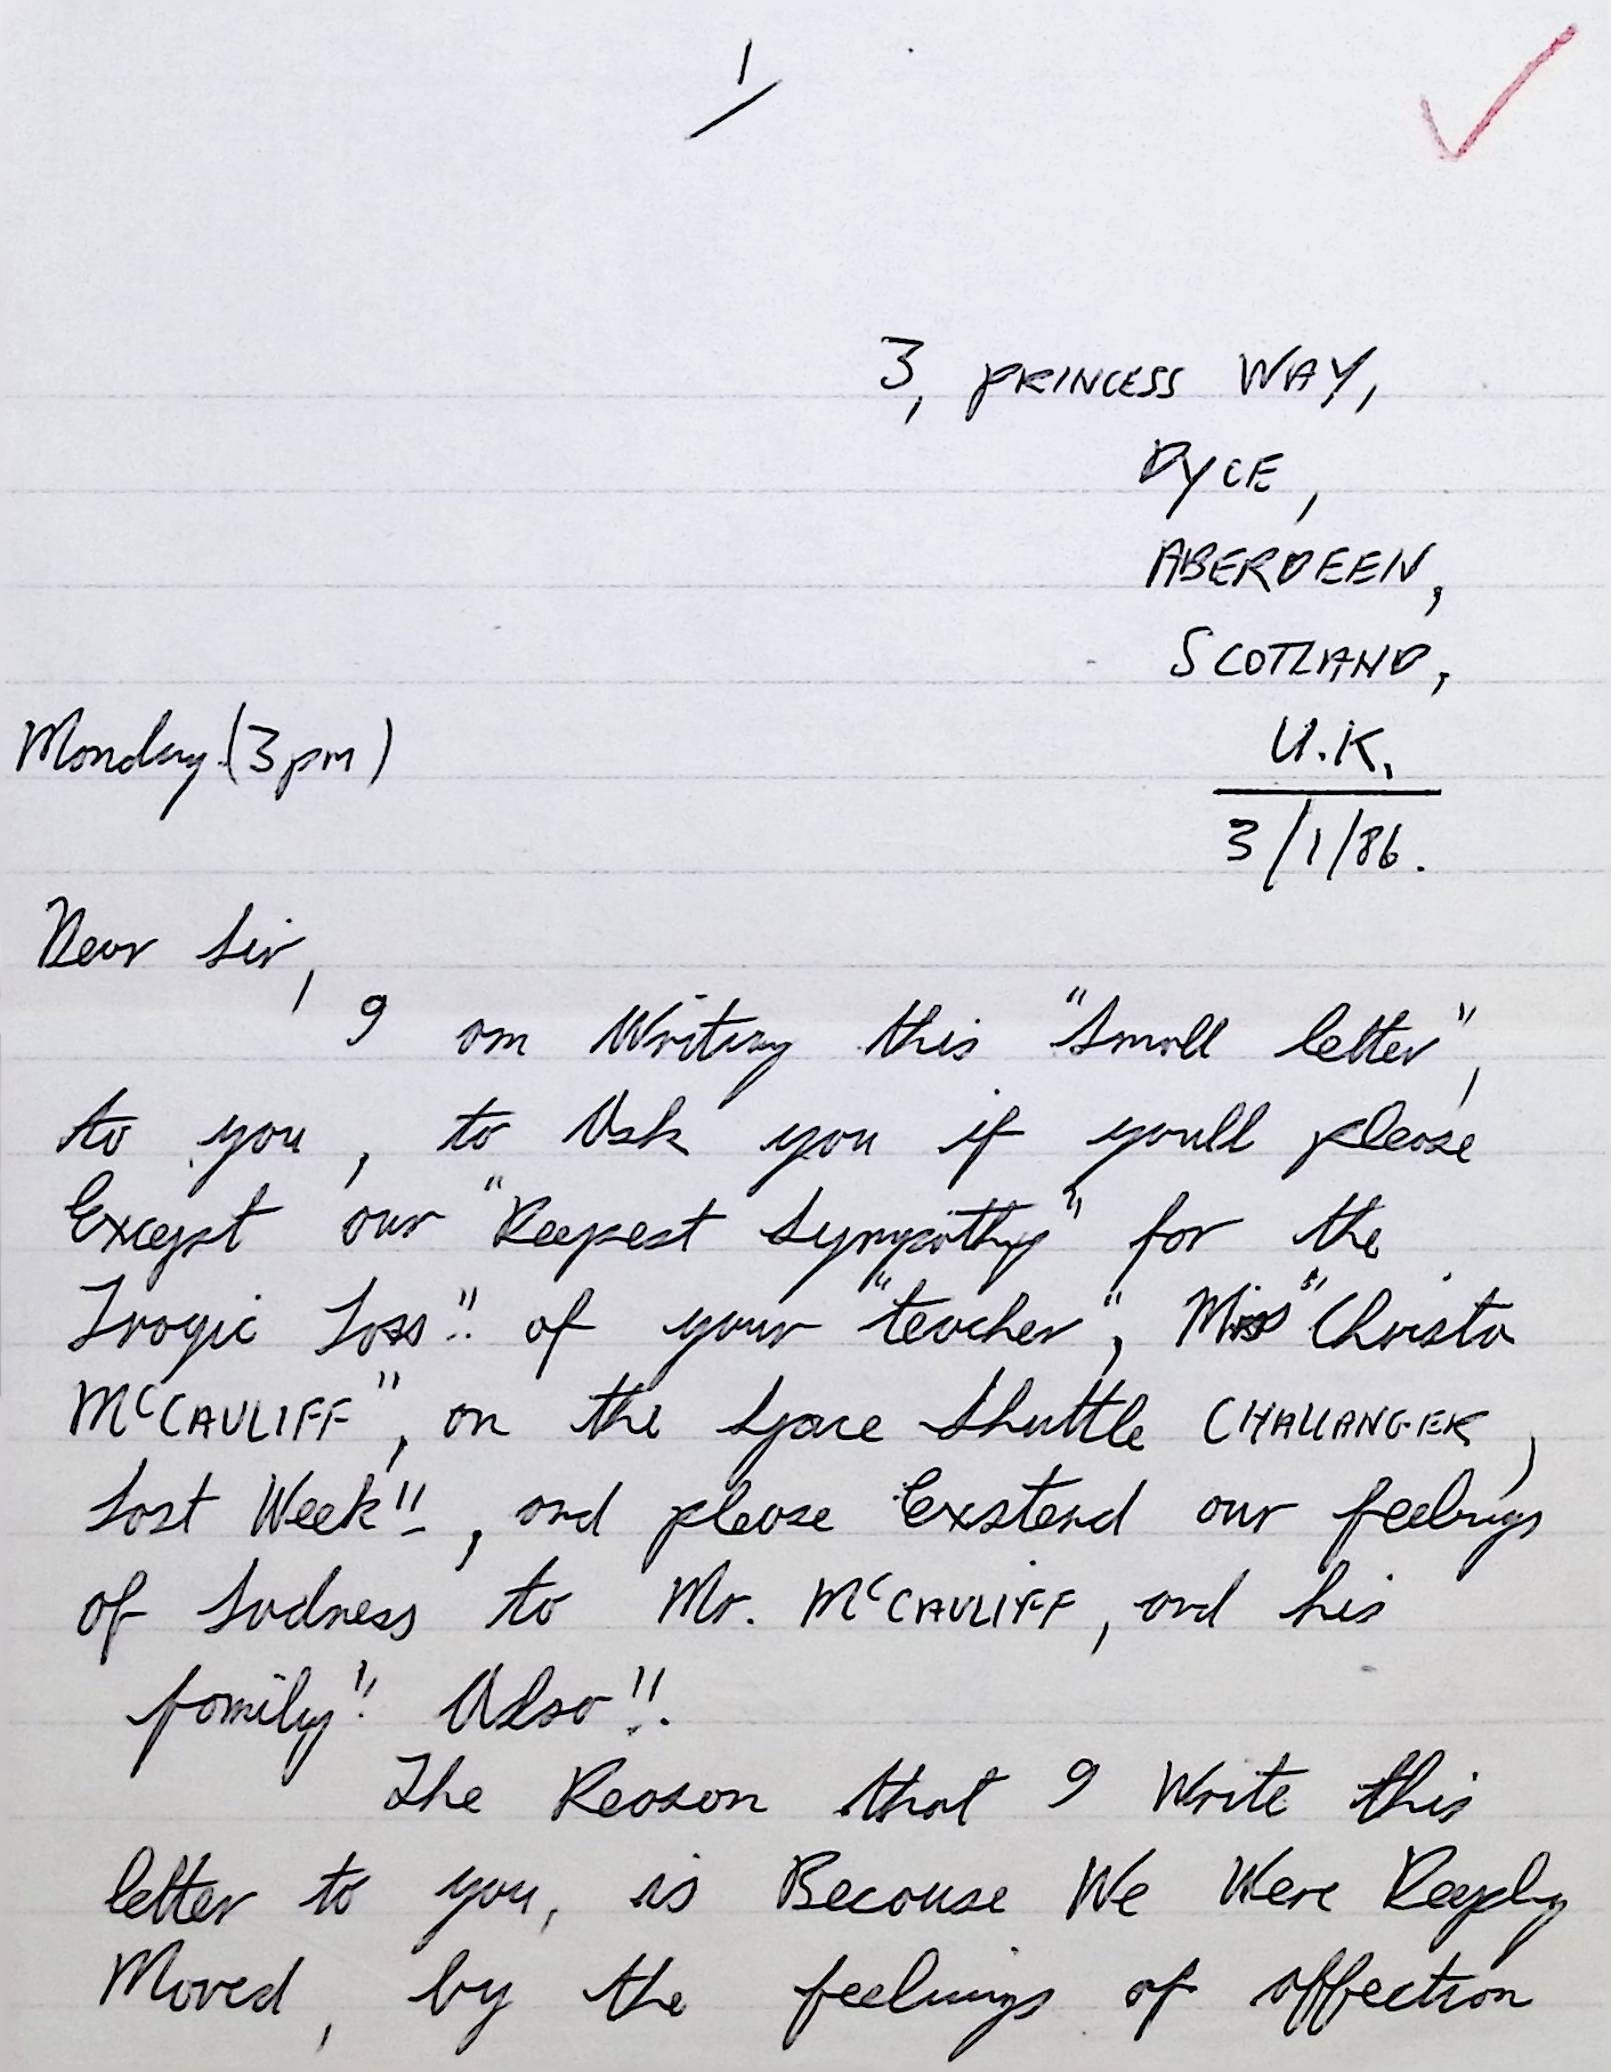 1
3, PRINCESS WAY,
DYCE,
ABERDEEN,
SCOTLAND,
U.K.
Monday (3pm)
3/1/86.
Dear Sir,
I am Writing this "Small letter",
to you, to Ask you if youll please
Except our "Deepest Sympathy" for the
Tragic Loss!! of your "teacher", Miss "Christa
McCAULIFF", on the Space Shuttle CHALLANGER,
Last Week!!, and please Exstend our feelings
of Sadness to Mr. McCAULIFF, and his
family!! Also!!.
The Reason that I Write this
letter to you, is Because We Were Deeply
Moved, by the feelings of affection